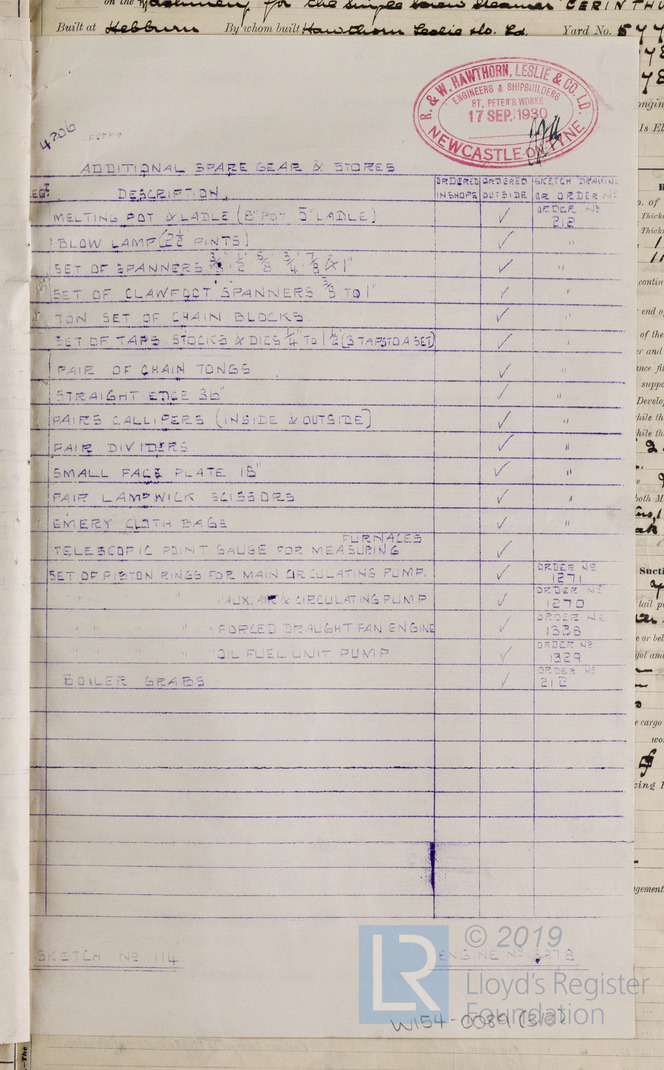 on the Machinery for the Single Screw Steamer "CERINTHU
Built at Hebburn By whom built Hawthorn Leslie &o. Ld. Yard No. 577
R. & W. HAWTHORN, LESLIE & CO. LD.
ENGINEERS & SHIPBUILDERS
ST, PETER'S WORKS
17 SEP. 1930
NEWCASTLE ON TYNE.
4206
ADDITIONAL SPARE GEAR & STORES
DESCRIPTION. ORDERED IN SHOPS ORDERED OUTSIDE SKETCH DRAWING OR ORDER No
MELTING POT & LADLE (8" POT 5" LADLE) ✓ ORDER No 212
1 BLOW LAMP (2½ PINTS) ✓ "
SET OF SPANNERS 3/8" ½" 5/8" 3/4" 7/8" & 1" ✓ "
SET OF CLAWFOOT SPANNERS 3/8 TO 1" ✓ "
TON SET OF CHAIN BLOCKS ✓ "
SET OF TAPS, STOCKS & DIES ¼" TO 1½ (3 TAPS TO A SET) ✓ "
PAIR OF CHAIN TONGS ✓ "
STRAIGHT EDGE 36" ✓ "
PAIRS CALLIPERS (INSIDE & OUTSIDE) ✓ "
PAIR DIVIDERS ✓ "
SMALL FACE PLATE 18" ✓ "
PAIR LAMPWICK SCISSORS ✓ "
EMERY CLOTH BAGS ✓ "
FURNACES
TELESCOPIC POINT GAUGE FOR MEASURING ✓
SET OF PISTON RINGS FOR MAIN CIRCULATING PUMP. ✓ ORDER No 1271
" " " " AUX. AIR & CIRCULATING PUMP ✓ ORDER No 1270
" " " " FORCED DRAUGHT FAN ENGINE ✓ ORDER No 1328
" " " " OIL FUEL UNIT PUMP ✓ ORDER No 1329
BOILER GRABS ✓ ORDER No 212
SKETCH No 114
ENGINE No 3878
LR © 2019
Lloyd's Register
Foundation
W154-0089 (3/3)